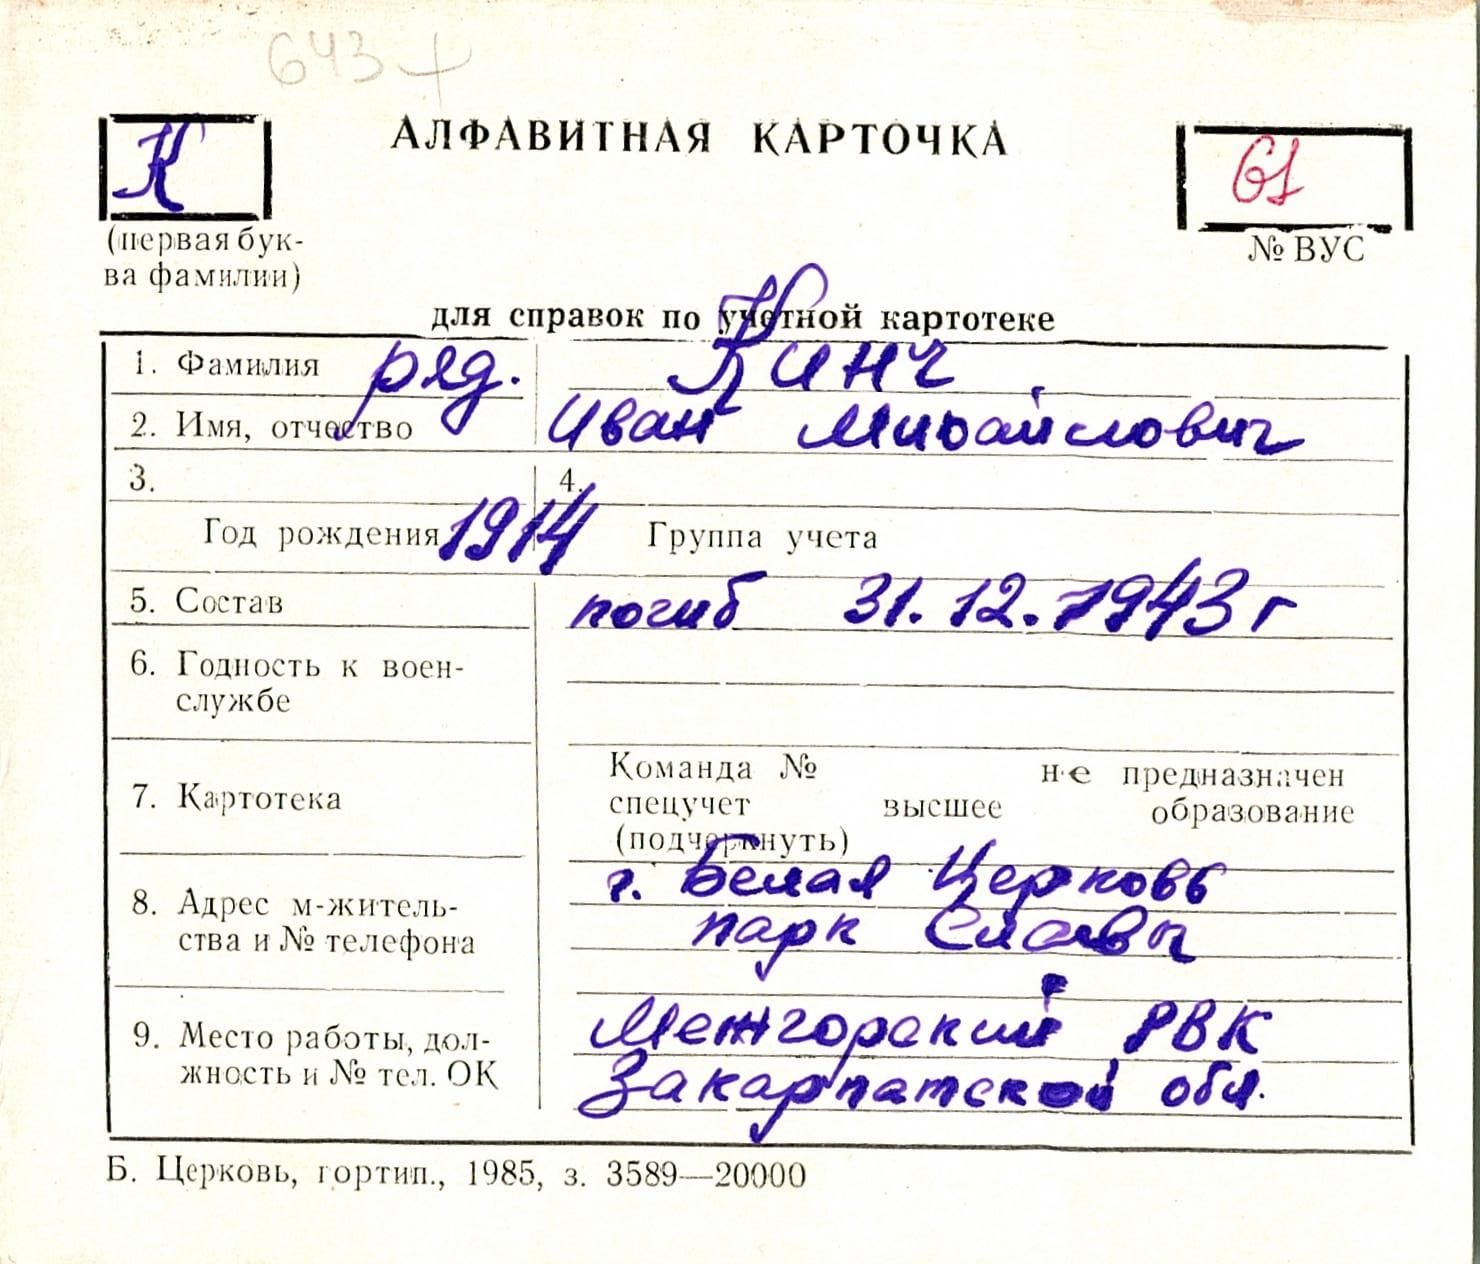 643
К
АЛФАВИТНАЯ КАРТОЧКА
61
(первая бук-
ва фамилии)
№ ВУС
для справок по учетной картотеке
1. Фамилия ряд. Кинч
2. Имя, отчество Иван Михайлович
3. 4.
Год рождения 1914 Группа учета
5. Состав погиб 31.12.1943 г
6. Годность к воен-
службе
7. Картотека
Команда № не предназначен
спецучет высшее образование
(подчеркнуть)
8. Адрес м-житель-
ства и № телефона
г. Белая Церковь
парк Славы
9. Место работы, дол-
жность и № тел. ОК
Межгорский РВК
Закарпатской обл.
Б. Церковь, гортип., 1985, з. 3589—20000